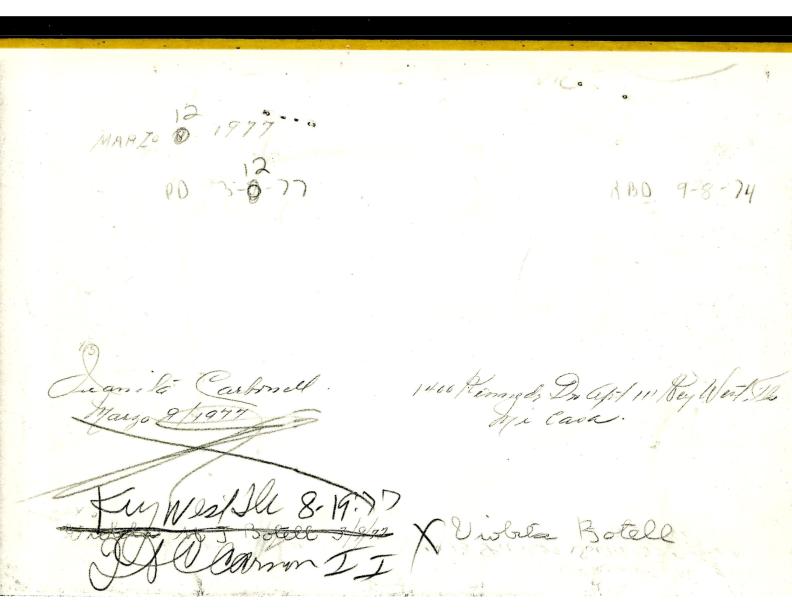 12
MARZO 1977
12
PD 3- -77
RBD 9-8-74
Juanita Carbonell.
Marzo 9/1977
1400 Kennedy Dr Apt 111 Key West, Fla
Mi Casa.
Key West Fla 8-19-77
M J Botell 3/8/72
II
X Violeta Botell